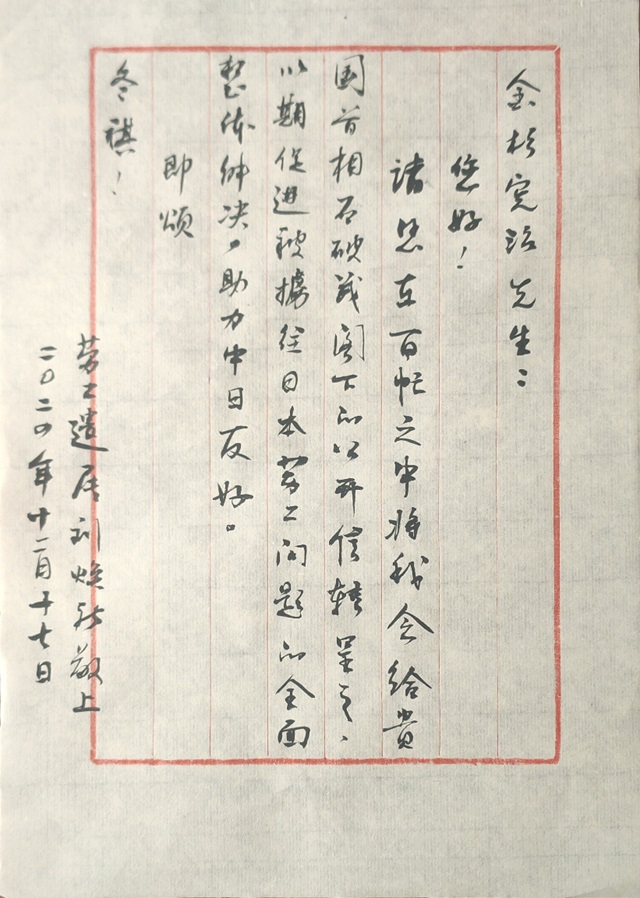 金杉宪治先生：
您好！
请您在百忙之中将我会给贵
国首相石破茂阁下的公开信转呈之，
以期促进被掳往日本劳工问题的全面
整体解决，助力中日友好。
即颂
冬祺！
劳工遗属刘焕新敬上
二〇二四年十二月十七日